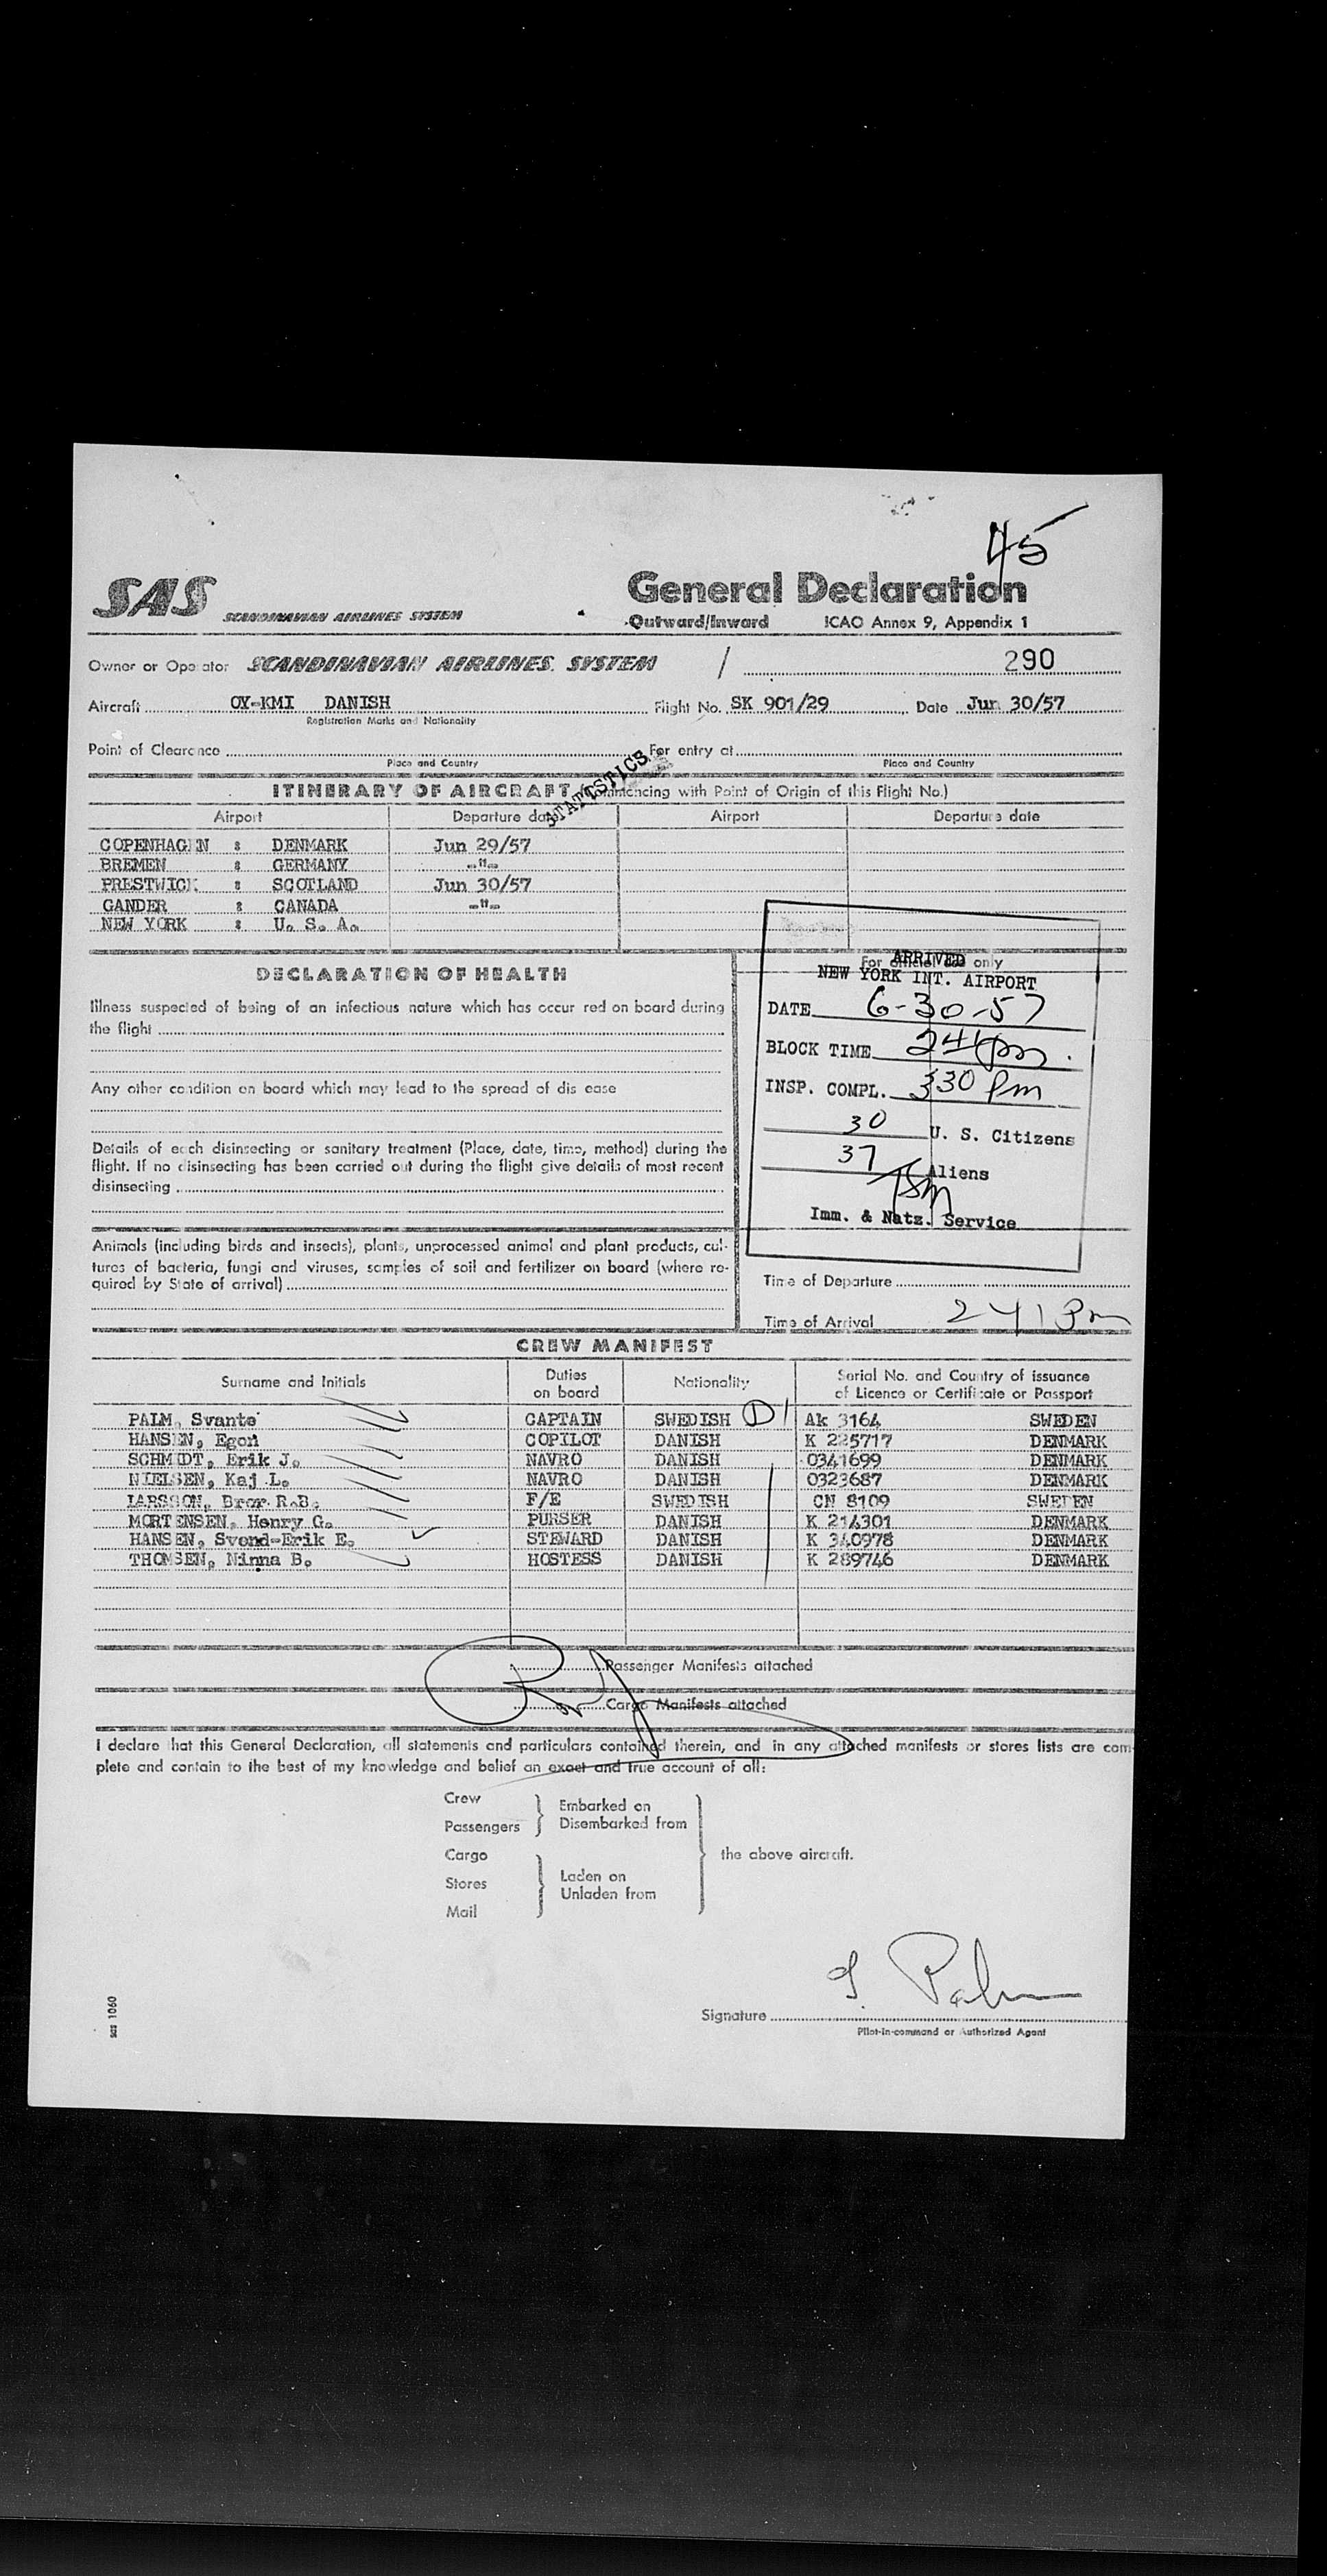 45
SAS SCANDINAVIAN AIRLINES SYSTEM
General Declaration
Outward/Inward ICAO Annex 9, Appendix 1
Owner or Operator SCANDINAVIAN AIRLINES SYSTEM / 290
Aircraft OY-KMI DANISH Flight No. SK 901/29 Date Jun 30/57
Registration Marks and Nationality
Point of Clearance For entry at
Place and Country Place and Country
STATISTICS
ITINERARY OF AIRCRAFT (Commencing with Point of Origin of this Flight No.)
Airport Departure date Airport Departure date
COPENHAGEN : DENMARK Jun 29/57
BREMEN : GERMANY -"-
PRESTWICK : SCOTLAND Jun 30/57
GANDER : CANADA -"-
NEW YORK : U. S. A.
DECLARATION OF HEALTH
Illness suspected of being of an infectious nature which has occurred on board during
the flight
Any other condition on board which may lead to the spread of disease
Details of each disinsecting or sanitary treatment (Place, date, time, method) during the
flight. If no disinsecting has been carried out during the flight give details of most recent
disinsecting
Animals (including birds and insects), plants, unprocessed animal and plant products, cul-
tures of bacteria, fungi and viruses, samples of soil and fertilizer on board (where re-
quired by State of arrival)
For official use only
ARRIVED
NEW YORK INT. AIRPORT
DATE 6-30-57
BLOCK TIME 241 pm.
INSP. COMPL. 330 pm
30 U. S. Citizens
37 Aliens
Imm. & Natz. Service
Time of Departure
Time of Arrival 241 Pm
CREW MANIFEST
Surname and Initials Duties on board Nationality Serial No. and Country of issuance of Licence or Certificate or Passport
PALM, Svante CAPTAIN SWEDISH D 1 Ak 3164 SWEDEN
HANSEN, Egon COPILOT DANISH K 225717 DENMARK
SCHMIDT, Erik J. NAVRO DANISH 0341699 DENMARK
NIELSEN, Kaj L. NAVRO DANISH 0323687 DENMARK
LARSSON, Bror R.B. F/E SWEDISH CN 8109 SWEDEN
MORTENSEN, Henry G. PURSER DANISH K 214301 DENMARK
HANSEN, Svend-Erik E. STEWARD DANISH K 340978 DENMARK
THOMSEN, Ninna B. HOSTESS DANISH K 289746 DENMARK
Passenger Manifests attached
Cargo Manifests attached
I declare that this General Declaration, all statements and particulars contained therein, and in any attached manifests or stores lists are com-
plete and contain to the best of my knowledge and belief an exact and true account of all:
Crew
Passengers
Embarked on
Disembarked from
Cargo
Stores
Mail
Laden on
Unladen from
the above aircraft.
S. Palm
Signature
Pilot-in-command or Authorized Agent
sas 1060